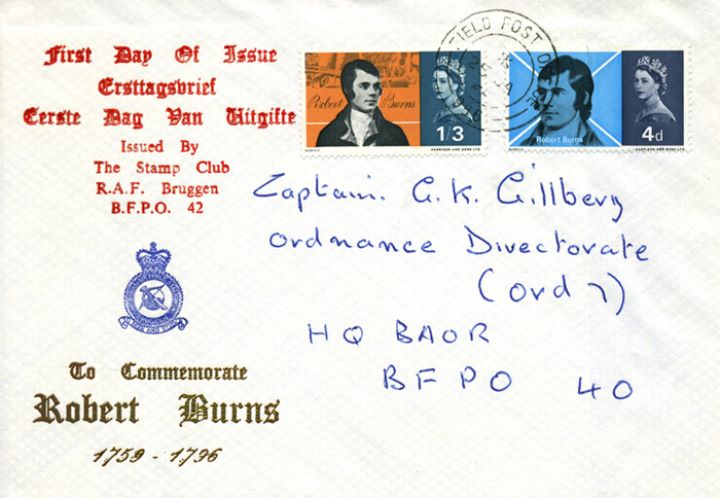 First Day Of Issue
Ersttagsbrief
Eerste Dag Van Uitgifte
Issued By
The Stamp Club
R.A.F. Bruggen
B.F.P.O. 42
To Commemorate
Robert Burns
1759 - 1796
FIELD POST
Robert Burns
1'3
HARRISON AND SONS LTD
Robert Burns
4d
HARRISON AND SONS LTD
Captain. G.K. Gillbery
Ordnance Directorate
(Ord 7)
HQ BAOR
BFPO 40